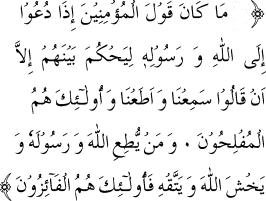 ﴿ مَا كَانَ قَوْلَ الْمُؤْمِنِينَ إِذَا دُعُوا
إِلَى اللّٰهِ وَ رَسُولِهِ لِيَحْكُمَ بَيْنَهُمْ إِلاَّ
اَنْ قَالُوا سَمِعْنَا وَ اَطَعْنَا وَ اُولٰٓئِكَ هُمُ
الْمُفْلِحُونَ ٠ وَ مَنْ يُطِعِ اللّٰهَ وَ رَسُولَهُ وَ
يَخْشَ اللّٰهَ وَ يَتَّقْهِ فَاُولٰٓئِكَ هُمُ الْفَآئِزُونَ ﴾